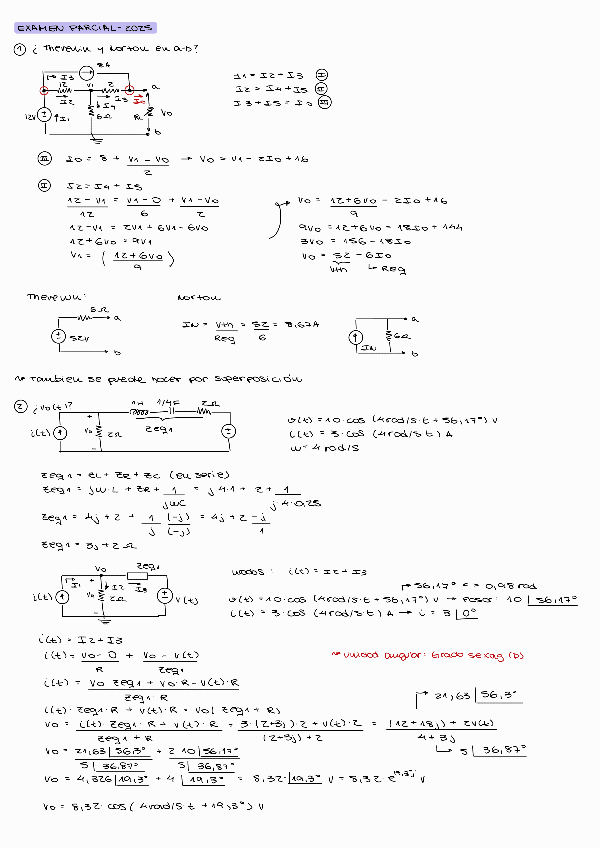 EXAMEN PARCIAL - 2025
① ¿ Thevenin y Norton en a-b?
8A
I3
12 V1 2 a
I2 I3 I0
I1 I4
12V 6Ω RL V0
b
I1 = I2 + I3 Ⓘ
I2 = I4 + I5 Ⓘ
I3 + I5 = I0 Ⓘ
Ⓘ I0 = 8 + (V1 - V0)/2 → V0 = V1 - 2I0 + 16
Ⓘ I2 = I4 + I5
(12 - V1)/12 = (V1 - 0)/6 + (V1 - V0)/2
12 - V1 = 2V1 + 6V1 - 6V0
12 + 6V0 = 9V1
V1 = ((12 + 6V0)/9)
V0 = (12 + 6V0)/9 - 2I0 + 16
9V0 = 12 + 6V0 - 18I0 + 144
3V0 = 156 - 18I0
V0 = 52 - 6I0
Vth Req
Thevenin: Norton
6Ω
a
52V
b
IN = Vth/Req = 52/6 = 8,67A
a
6Ω
IN
b
También se puede hacer por superposición
② ¿V0(t)?
1H 1/4F 2Ω
Zeq1
i(t) V0 2Ω
v(t) = 10·cos (4rad/s·t + 56,17°) V
i(t) = 3·cos (4rad/s·t) A
w = 4 rad/s
Zeq1 = ZL + ZR + ZC (en serie)
Zeq1 = jw·L + ZR + 1/jwC = j4·1 + 2 + 1/j·4·0,25
Zeq1 = 4j + 2 + 1/j (-j)/(-j) = 4j + 2 -j/1
Zeq1 = 3j + 2 Ω
V0 Zeq1
I1 I2 I3
i(t) V0 2Ω V(t)
nodos: i(t) = I2 + I3
56,17° <=> 0,98 rad
v(t) = 10·cos (4rad/s·t + 56,17°) V → fasor: 10 |56,17°
i(t) = 3·cos (4rad/s·t) A → i = 3 |0°
i(t) = I2 + I3
i(t) = (V0 - 0)/R + (V0 - V(t))/Zeq1
unidad angular: Grado sexag (D)
i(t) = (V0·Zeq1 + V0·R - V(t)·R)/(Zeq1·R)
i(t)·Zeq1·R + V(t)·R = V0 (Zeq1 + R)
21,63 |56,3°
V0 = (i(t)·Zeq1·R + V(t)·R)/(Zeq1 + R) = (3·(2+3j)·2 + V(t)·2)/((2+3j) + 2) = ((12 + 18j) + 2V(t))/(4 + 3j)
5 |36,87°
V0 = 21,63 |56,3° / 5 |36,87° + 2·10 |56,17° / 5 |36,87°
V0 = 4,326 |19,3° + 4 |19,3° = 8,32·|19,3° V = 8,32·e^19,3j V
V0 = 8,32·cos (4rad/s t + 19,3°) V